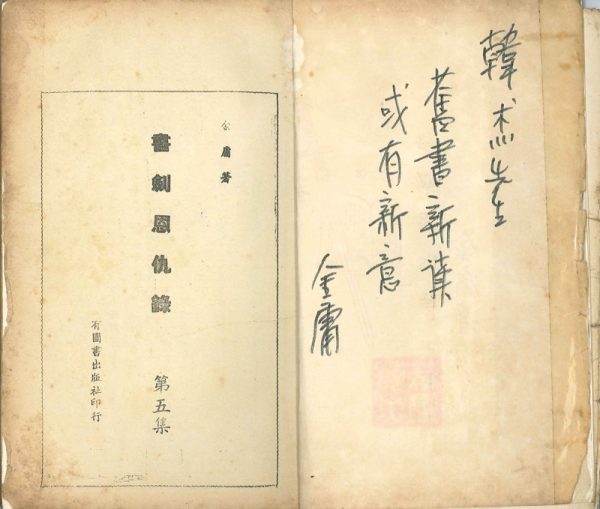 韓杰先生
舊書新讀
或有新意
金庸
金庸著
書劍恩仇錄
第五集
有圖書出版社印行